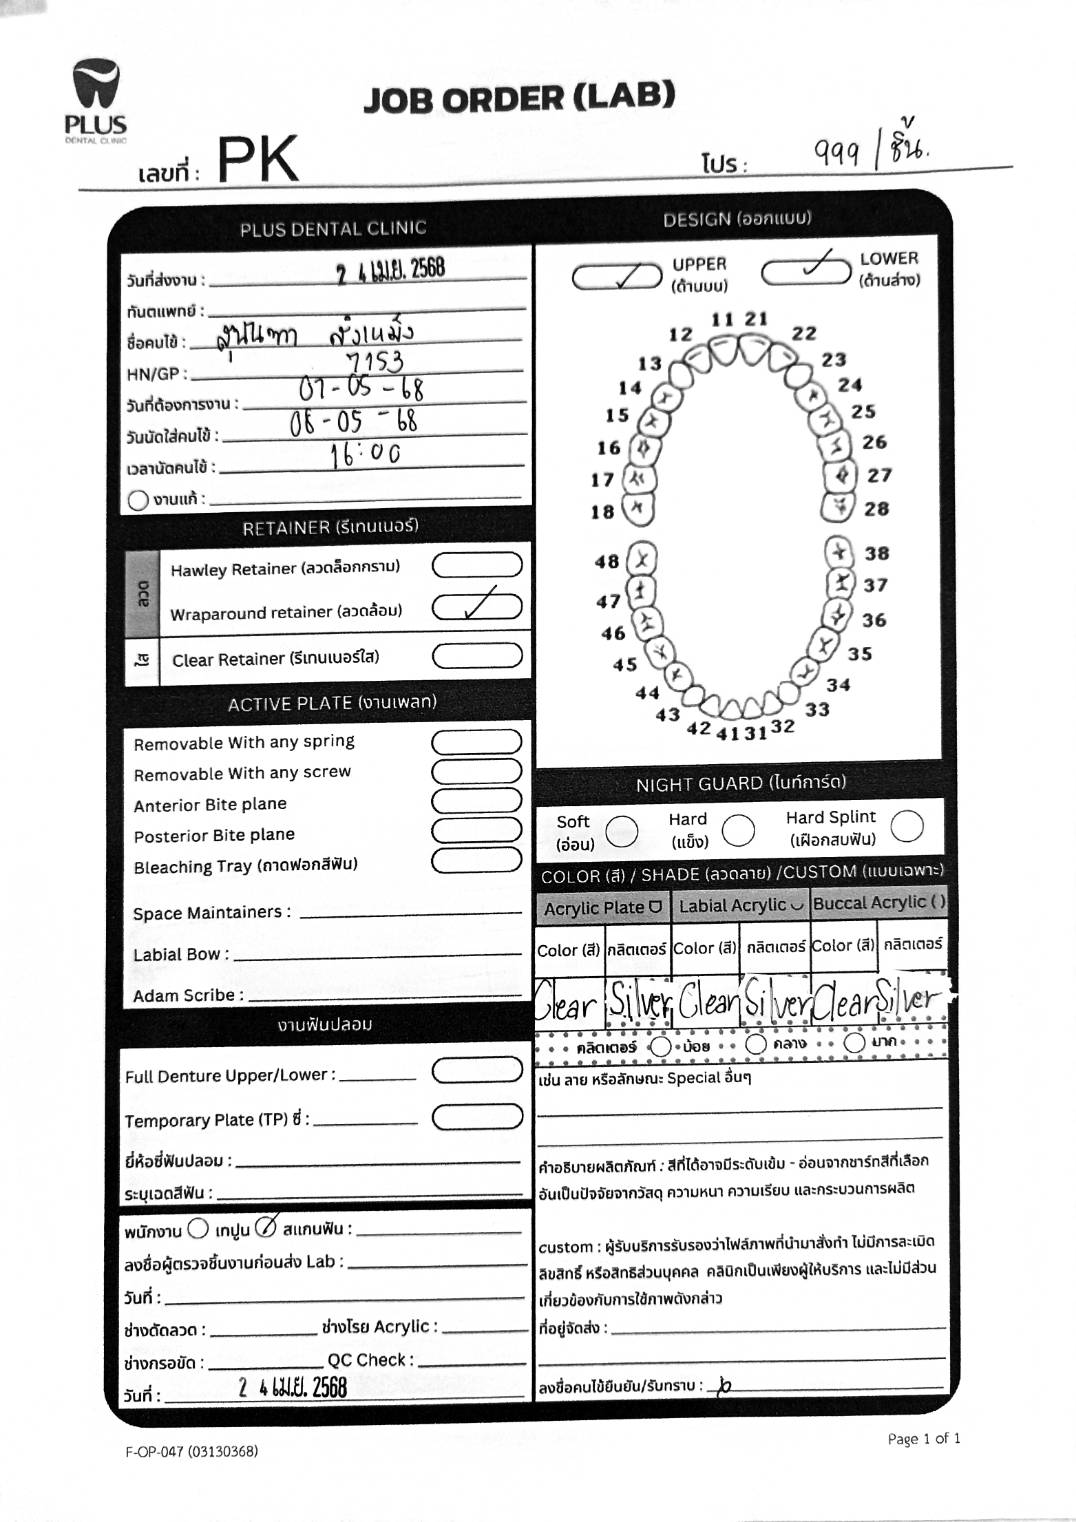 PLUS
DENTAL CLINIC
JOB ORDER (LAB)
เลขที่ : PK
โปร : 999 / ชิ้น.
PLUS DENTAL CLINIC
วันที่ส่งงาน : 2 4 เม.ย. 2568
ทันตแพทย์ :
ชื่อคนไข้ : สุนันทา สังเหม็ง
HN/GP : 7153
วันที่ต้องการงาน : 07-05-68
วันนัดใส่คนไข้ : 08-05-68
เวลานัดคนไข้ : 16:00
งานแก้ :
RETAINER (รีเทนเนอร์)
ลวด
Hawley Retainer (ลวดล็อกกราม)
Wraparound retainer (ลวดล้อม)
ใส
Clear Retainer (รีเทนเนอร์ใส)
ACTIVE PLATE (งานเพลท)
Removable With any spring
Removable With any screw
Anterior Bite plane
Posterior Bite plane
Bleaching Tray (ถาดฟอกสีฟัน)
Space Maintainers :
Labial Bow :
Adam Scribe :
งานฟันปลอม
Full Denture Upper/Lower :
Temporary Plate (TP) ซี่ :
ยี่ห้อซี่ฟันปลอม :
ระบุเฉดสีฟัน :
พนักงาน เทปูน สแกนฟัน :
ลงชื่อผู้ตรวจชิ้นงานก่อนส่ง Lab :
วันที่ :
ช่างดัดลวด : ช่างโรย Acrylic :
ช่างกรอขัด : QC Check :
วันที่ : 2 4 เม.ย. 2568
DESIGN (ออกแบบ)
UPPER
(ด้านบน)
LOWER
(ด้านล่าง)
11 21
12 22
13 23
14 24
15 25
16 26
17 27
18 28
48 38
47 37
46 36
45 35
44 34
43 33
42 41 31 32
NIGHT GUARD (ไนท์การ์ด)
Soft
(อ่อน)
Hard
(แข็ง)
Hard Splint
(เฝือกสบฟัน)
COLOR (สี) / SHADE (ลวดลาย) /CUSTOM (แบบเฉพาะ)
Acrylic Plate Labial Acrylic Buccal Acrylic ( )
Color (สี) กลิตเตอร์ Color (สี) กลิตเตอร์ Color (สี) กลิตเตอร์
Clear Silver Clear Silver Clear Silver
กลิตเตอร์ น้อย กลาง มาก
เช่น ลาย หรือลักษณะ Special อื่นๆ
คำอธิบายผลิตภัณฑ์ : สีที่ได้อาจมีระดับเข้ม - อ่อนจากชาร์ทสีที่เลือก
อันเป็นปัจจัยจากวัสดุ ความหนา ความเรียบ และกระบวนการผลิต
custom : ผู้รับบริการรับรองว่าไฟล์ภาพที่นำมาสั่งทำ ไม่มีการละเมิด
ลิขสิทธิ์ หรือสิทธิส่วนบุคคล คลินิกเป็นเพียงผู้ให้บริการ และไม่มีส่วน
เกี่ยวข้องกับการใช้ภาพดังกล่าว
ที่อยู่จัดส่ง :
ลงชื่อคนไข้ยืนยัน/รับทราบ :
F-OP-047 (03130368)
Page 1 of 1